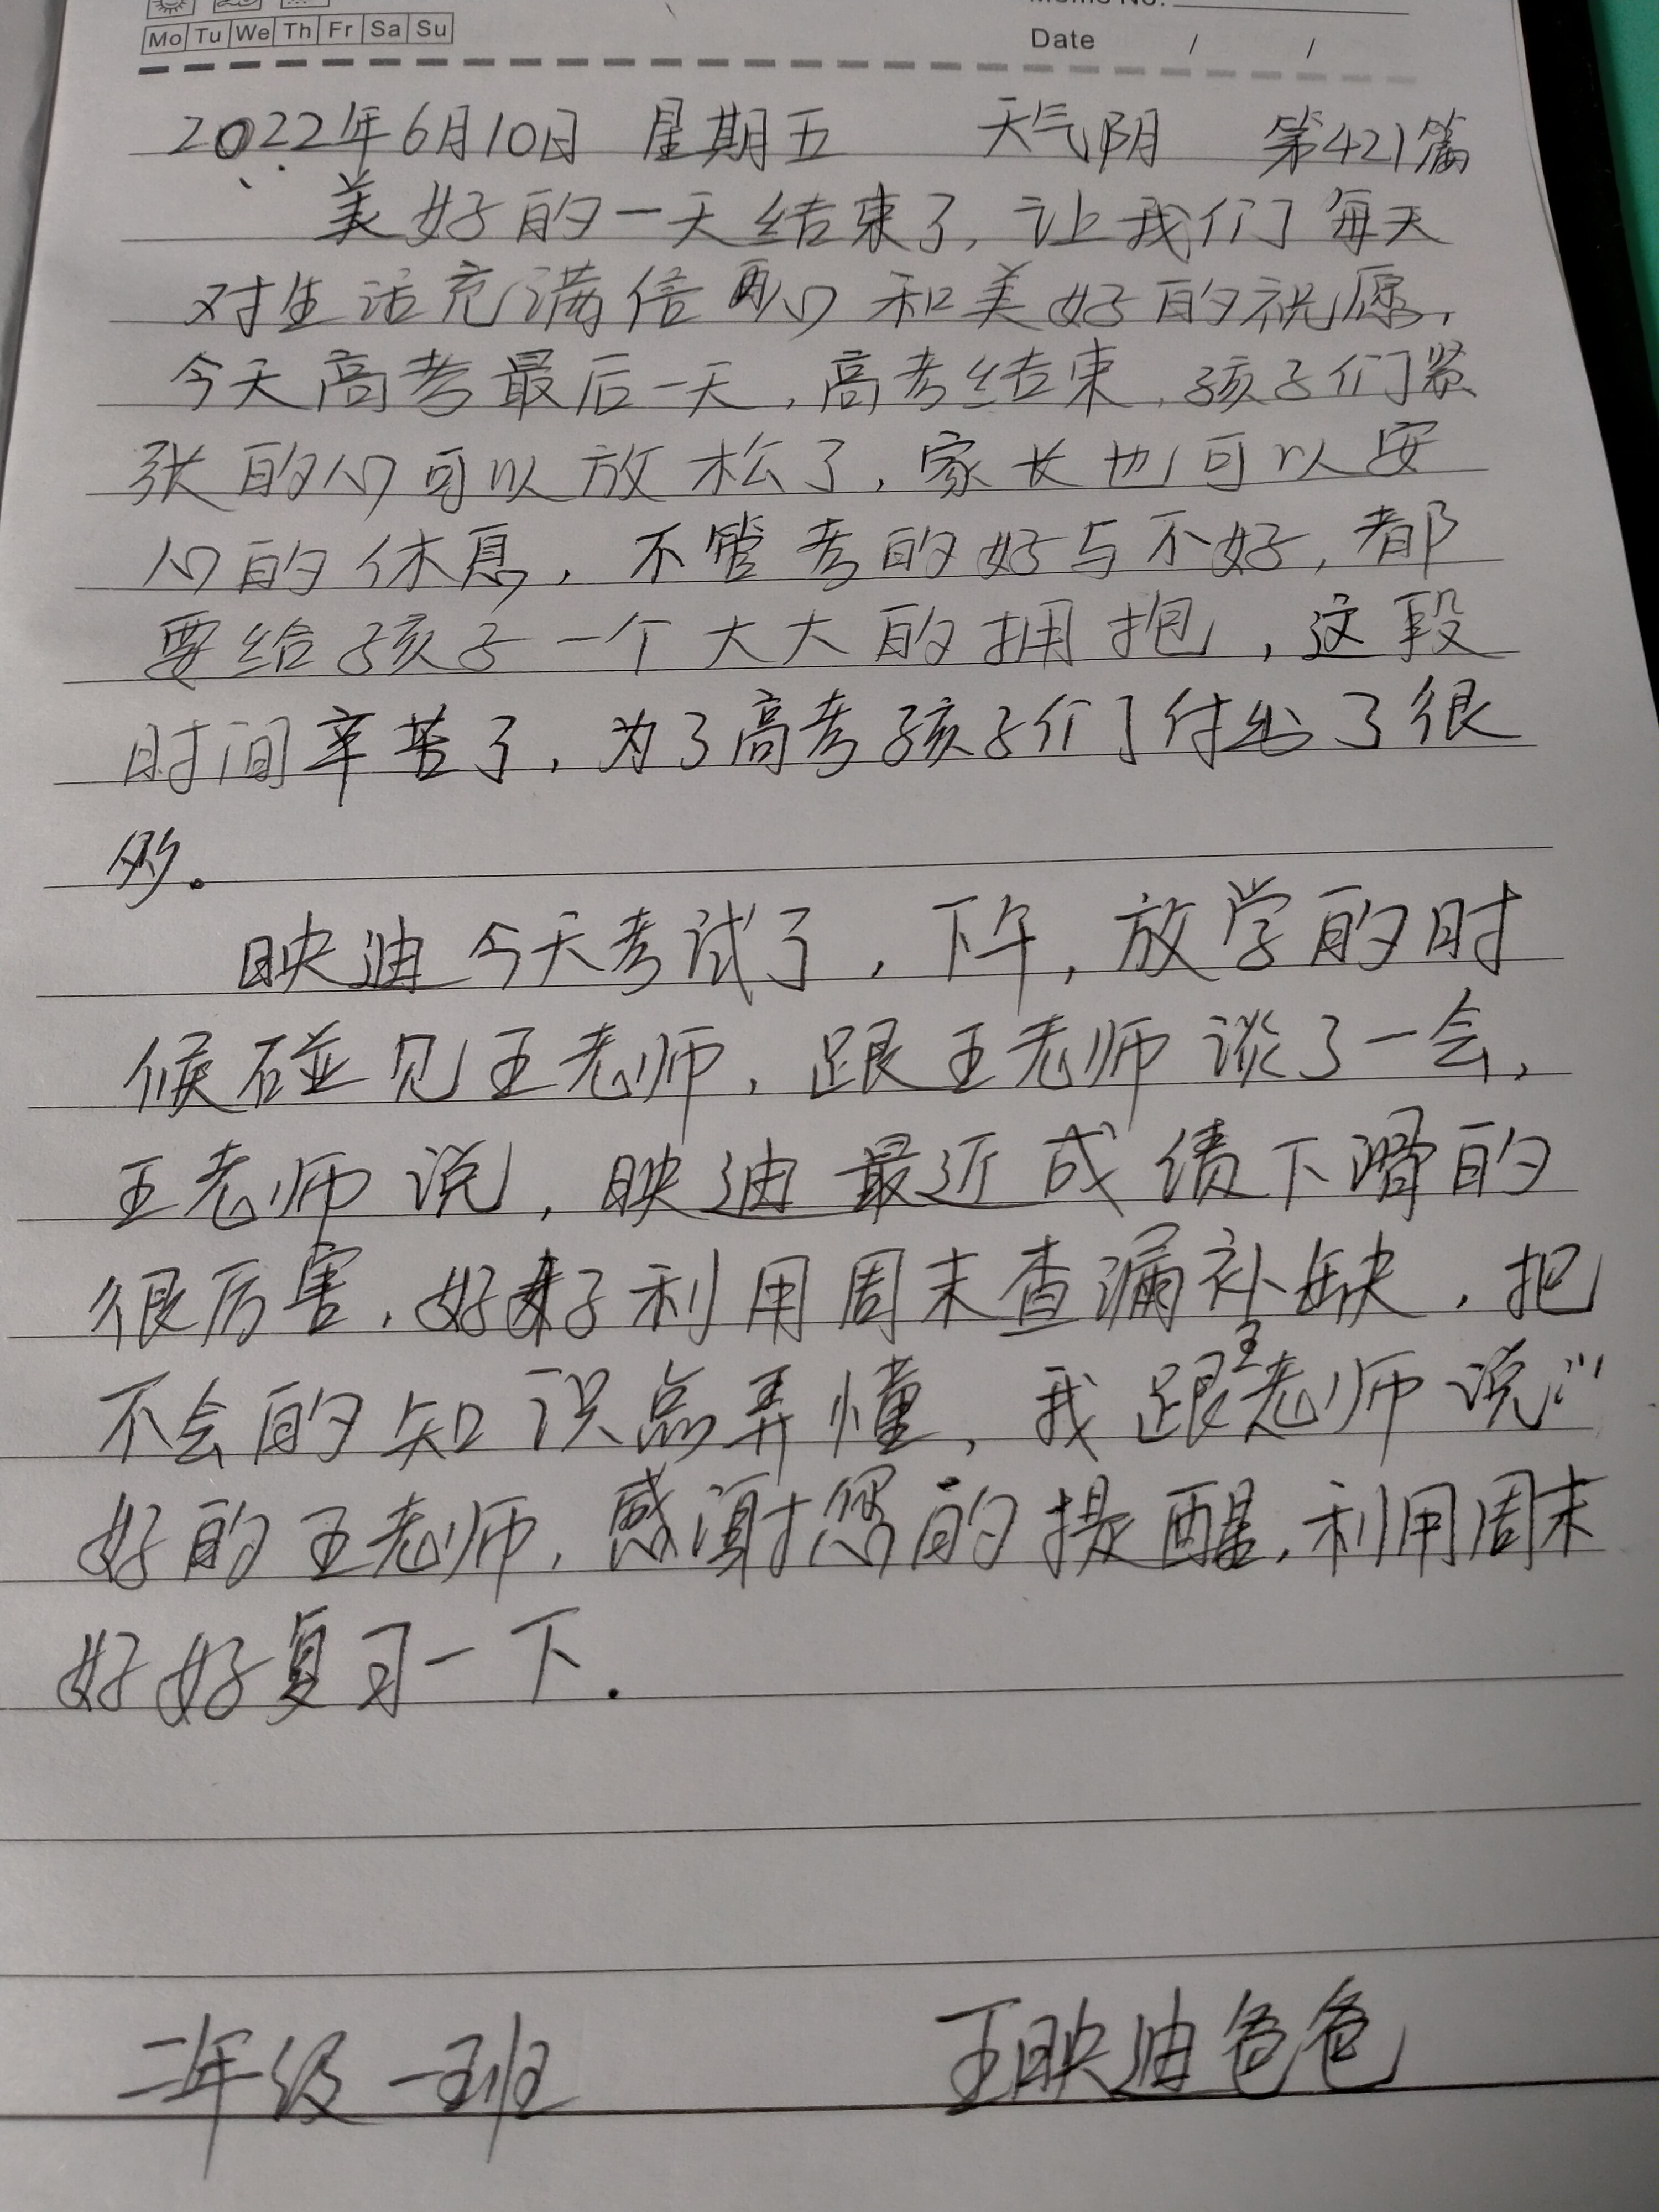 Mo Tu We Th Fr Sa Su
Date / /
2022年6月10日 星期五 天气阴 第421篇
美好的一天结束了,让我们每天
对生活充满信心和美好的祝愿,
今天高考最后一天,高考结束,孩子们紧
张的心可以放松了,家长也可以安
心的休息,不管考的好与不好,都
要给孩子一个大大的拥抱,这段
时间辛苦了,为了高考孩子们付出了很
多。
映迪今天考试了,下午,放学的时
候碰见王老师,跟王老师谈了一会,
王老师说,映迪最近成绩下滑的
很厉害,好好利用周末查漏补缺,把
不会的知识点弄懂,我跟王老师说:"
好的王老师,感谢您的提醒,利用周末
好好复习一下.
二年级一班 王映迪爸爸